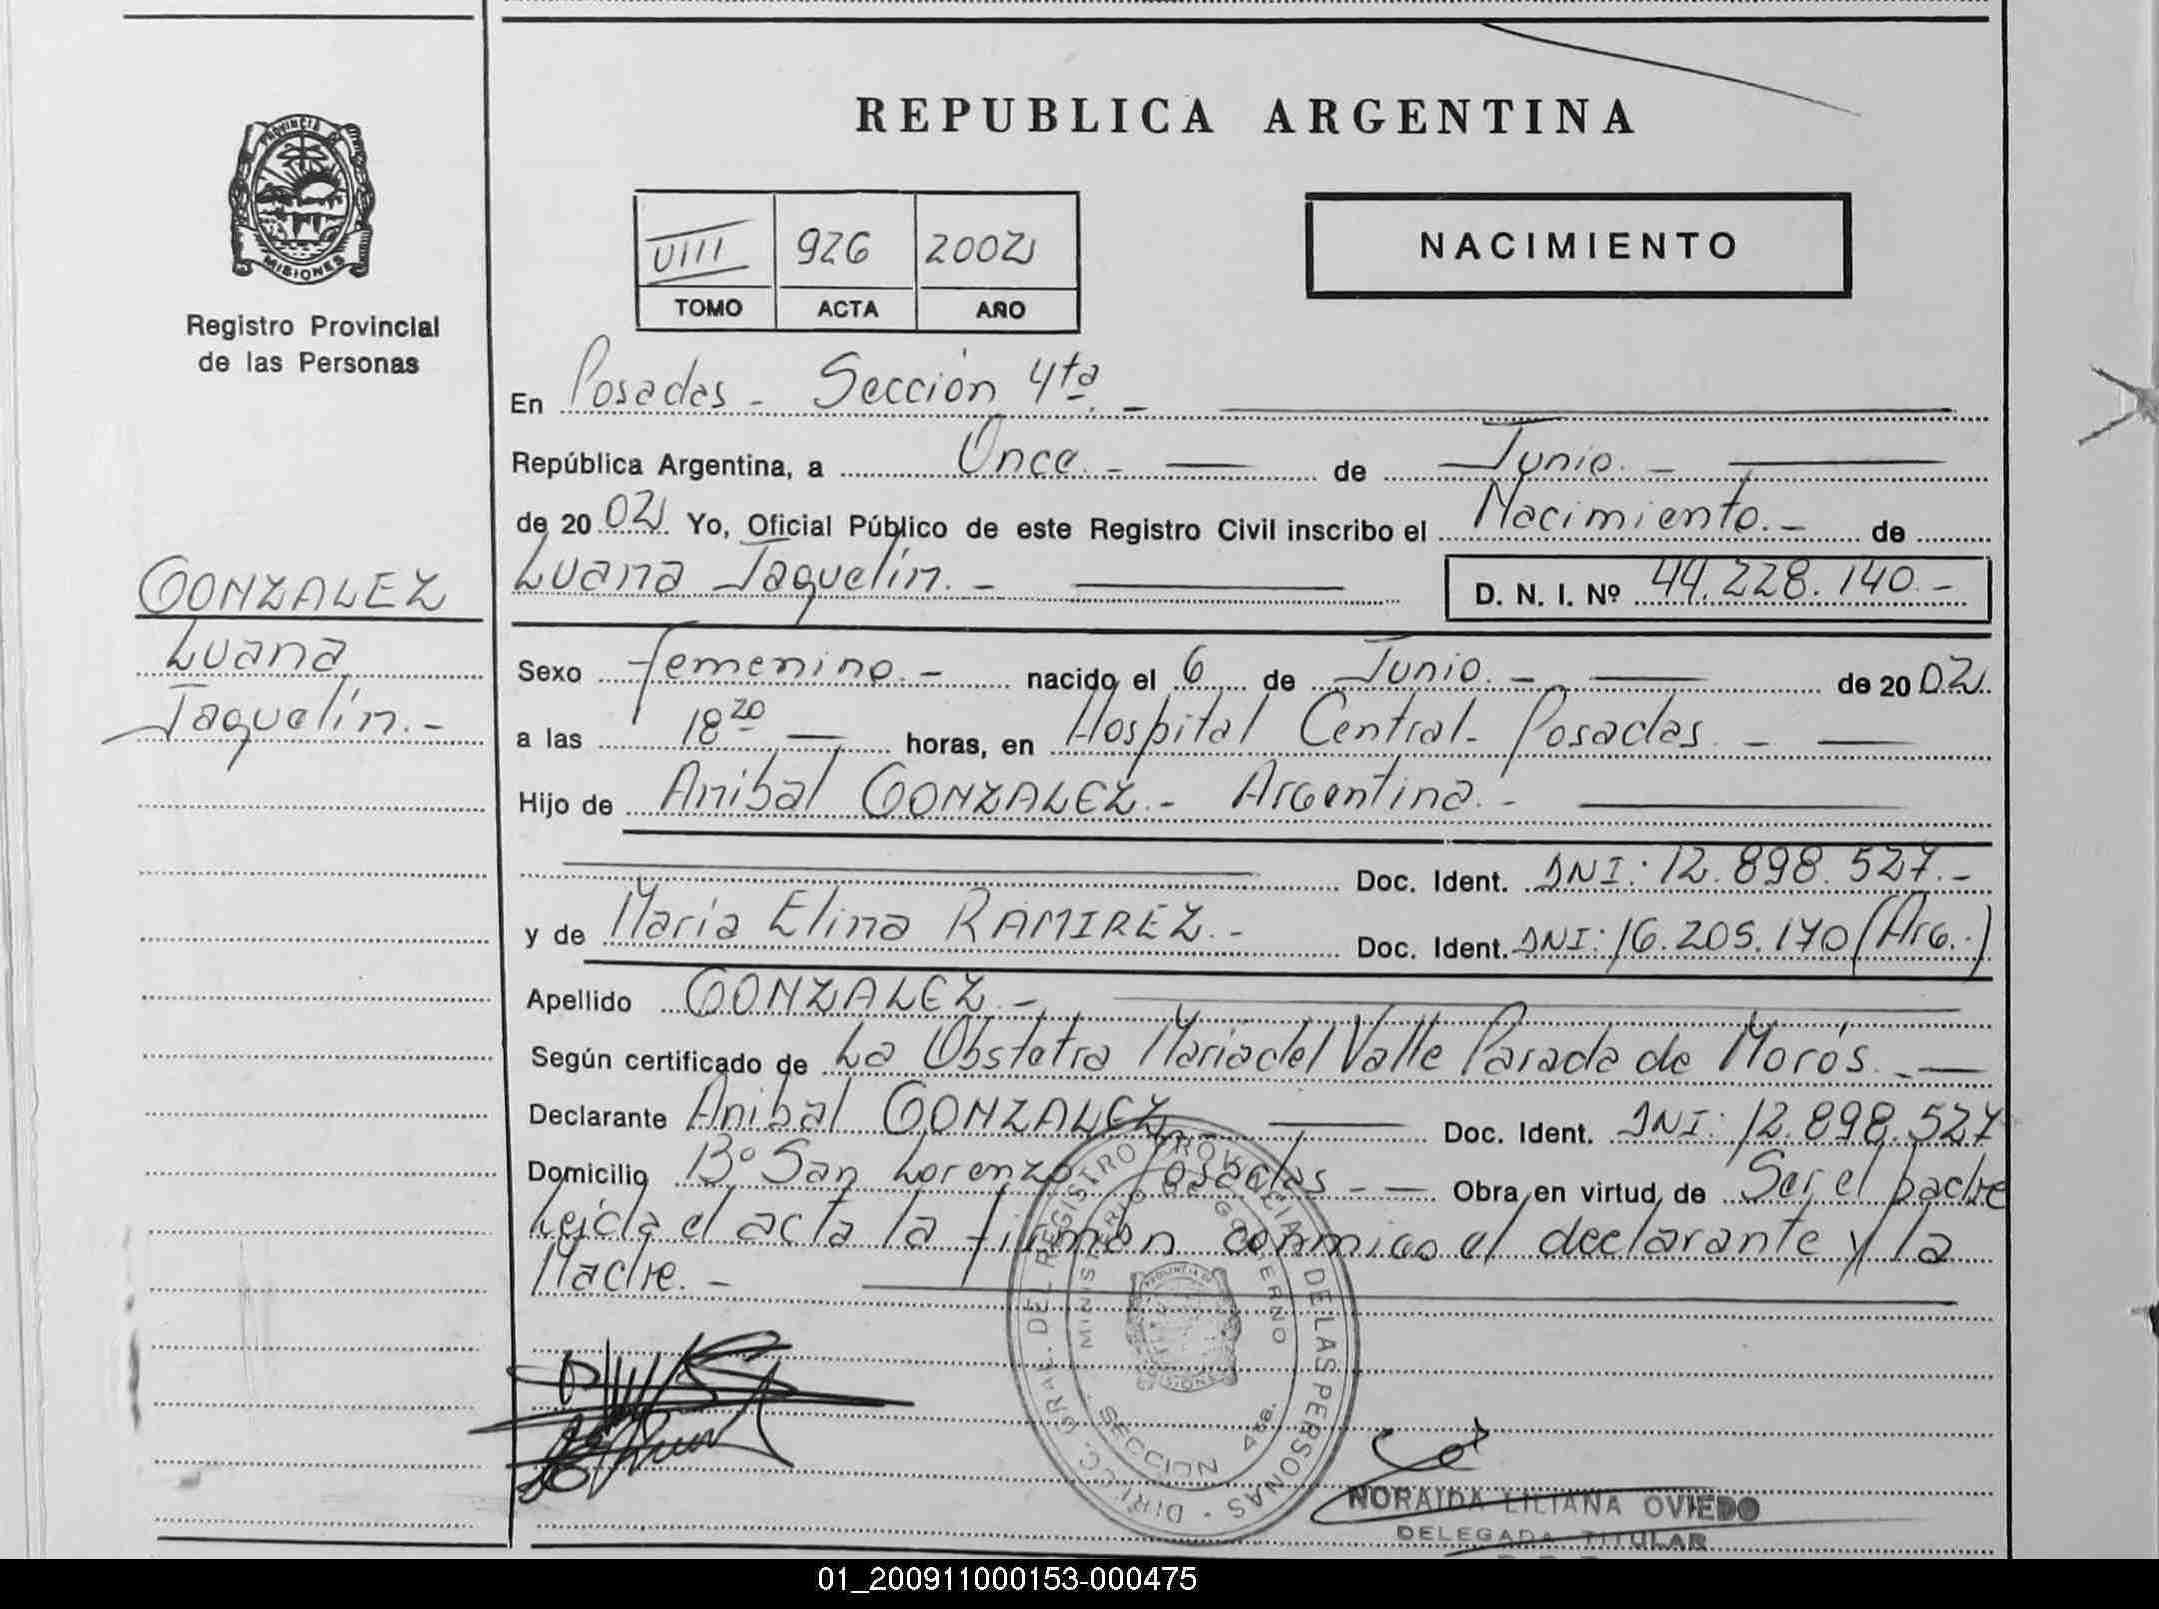 REPUBLICA ARGENTINA
PROVINCIA DE
MISIONES
Registro Provincial
de las Personas
VIII 926 2002
TOMO ACTA AÑO
NACIMIENTO
En Posadas - Sección 4ta. -
República Argentina, a Once. - de Junio. -
de 20 02 Yo, Oficial Público de este Registro Civil inscribo el Nacimiento. - de
Luana Jaquelín. - D. N. I. Nº 44.228.140.-
GONZALEZ
Luana
Jaquelín. -
Sexo femenino. - nacido el 6 de Junio. - de 20 02.
a las 18 20 horas, en Hospital Central - Posadas. -
Hijo de Anibal GONZALEZ. - Argentina. -
Doc. Ident. DNI: 12.898.527.-
y de Maria Elina RAMIREZ. - Doc. Ident. DNI: 16.205.170 (Arg.-)
Apellido GONZALEZ. -
Según certificado de La Obstetra Maria del Valle Parada de Morós. -
Declarante Anibal GONZALEZ Doc. Ident. DNI: 12.898.527
Domicilio Bº San Lorenzo Posadas - Obra en virtud de Ser el padre
Leída el acta la firman conmigo el declarante y la
Madre. -
DIRECC. GRAL. DEL REGISTRO PROVINCIAL DE LAS PERSONAS
MINISTERIO DE GOBIERNO
SECCION 4ta.
NORAIDA LILIANA OVIEDO
DELEGADA TITULAR
01_200911000153-000475